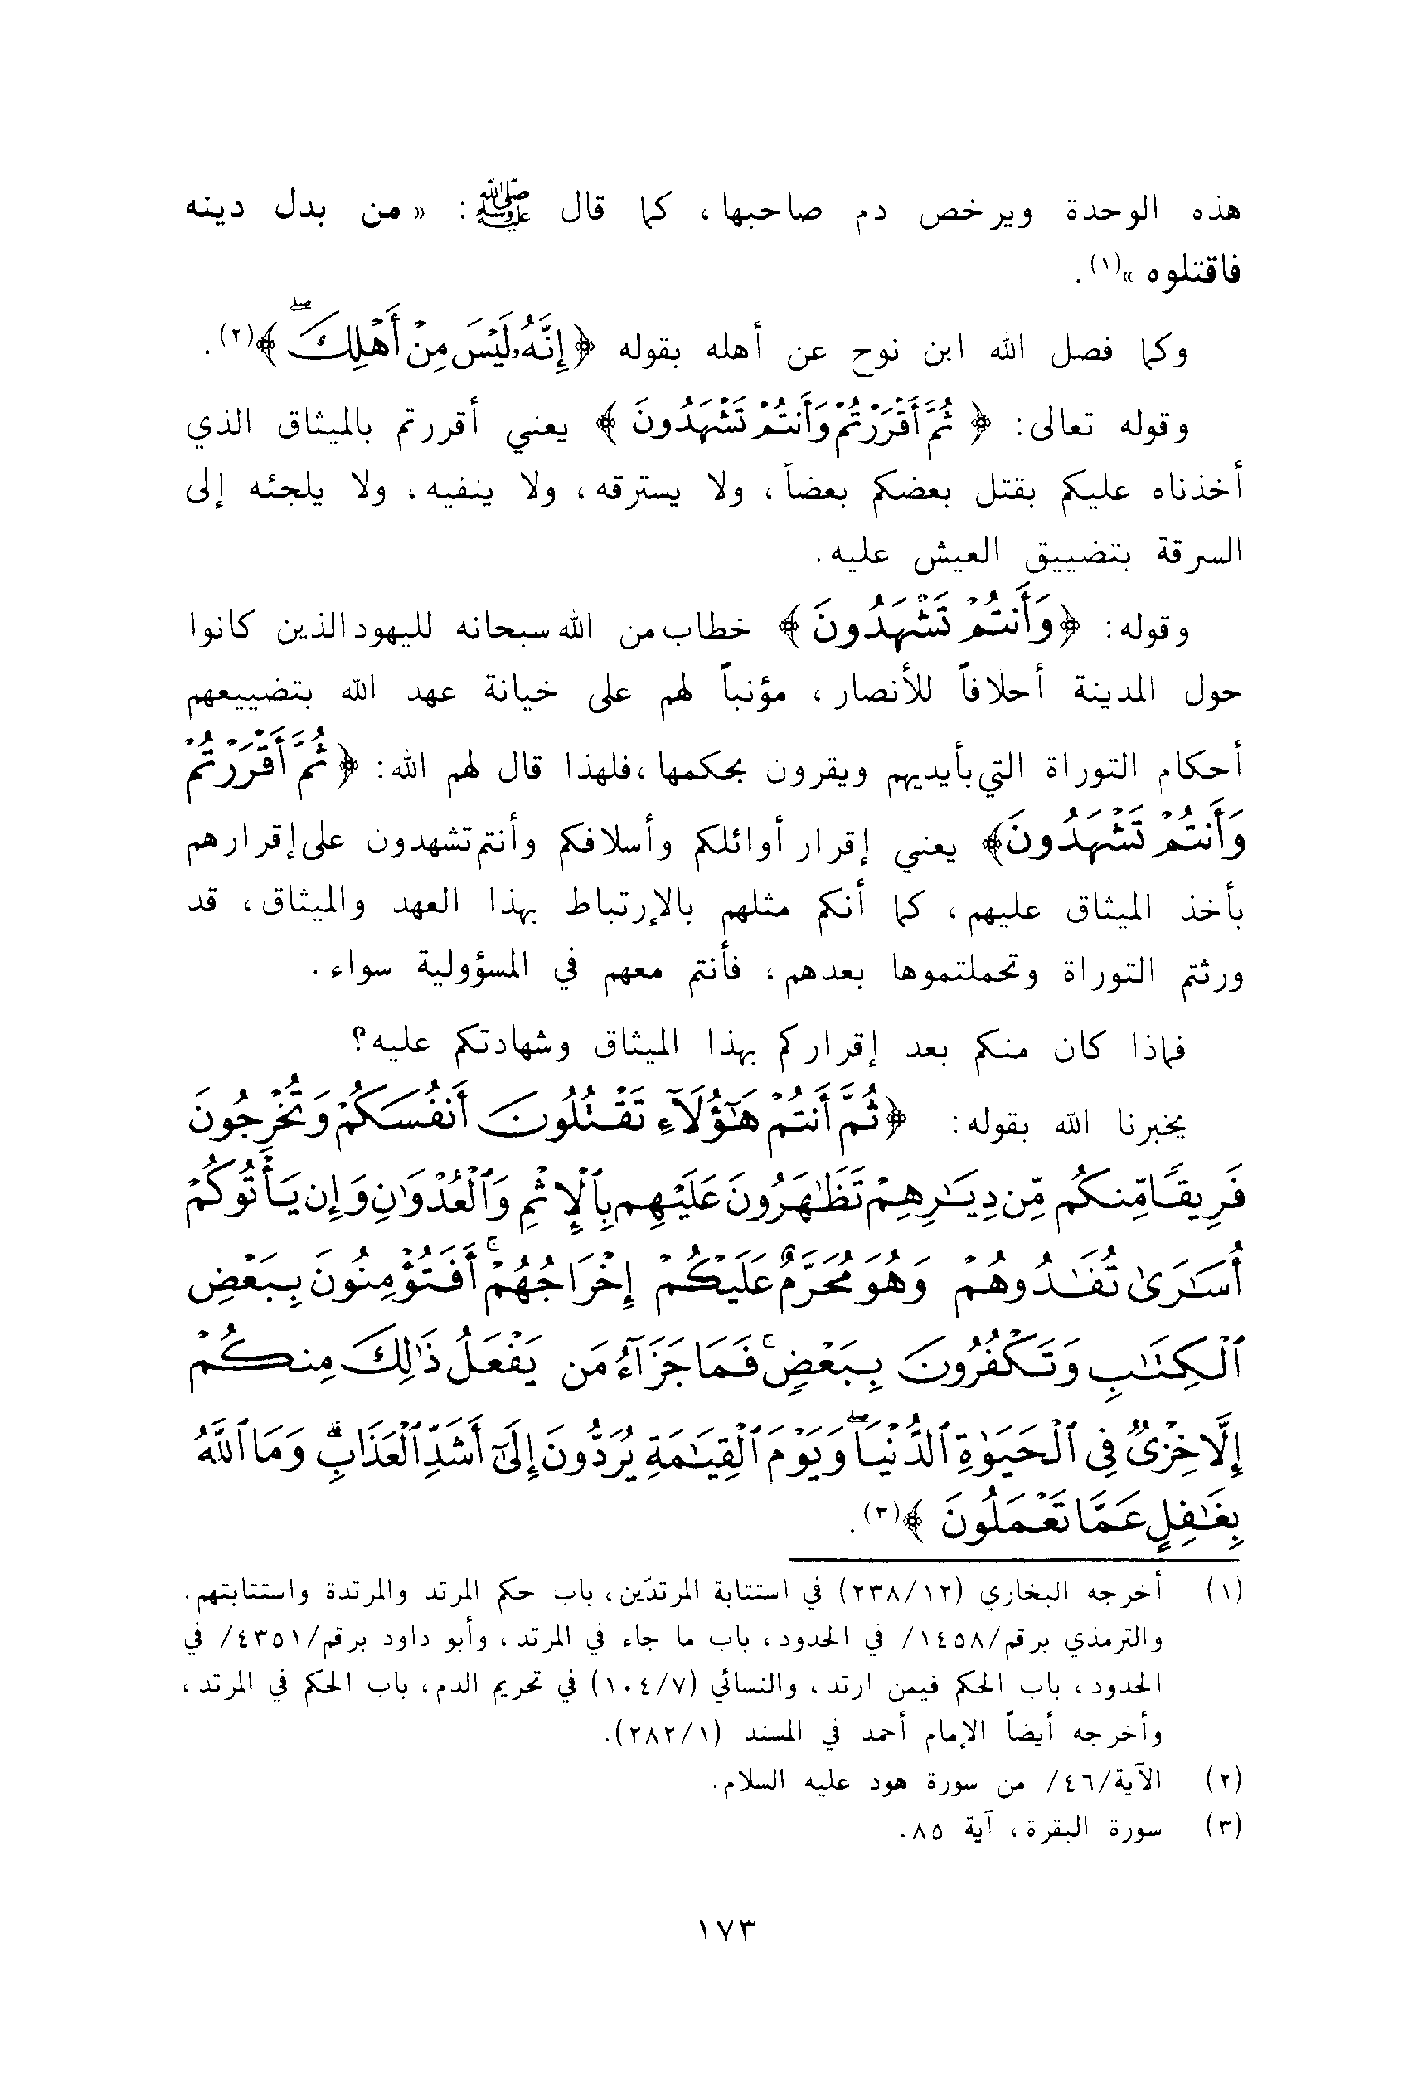 هذه الوحدة ويرخص دم صاحبها، كما قال ﷺ: «من بدل دينه
فاقتلوه»(١).
وكما فصل الله ابن نوح عن أهله بقوله ﴿إِنَّهُۥ لَيْسَ مِنْ أَهْلِكَ ۖ﴾(٢).
وقوله تعالى: ﴿ثُمَّ أَقْرَرْتُمْ وَأَنتُمْ تَشْهَدُونَ﴾ يعني أقررتم بالميثاق الذي
أخذناه عليكم بقتل بعضكم بعضاً، ولا يسترقه، ولا ينفيه، ولا يلجئه إلى
السرقة بتضييق العيش عليه.
وقوله: ﴿وَأَنتُمْ تَشْهَدُونَ﴾ خطاب من الله سبحانه لليهود الذين كانوا
حول المدينة أحلافاً للأنصار، مؤنباً لهم على خيانة عهد الله بتضييعهم
أحكام التوراة التي بأيديهم ويقرون بحكمها، فلهذا قال لهم الله: ﴿ثُمَّ أَقْرَرْتُمْ
وَأَنتُمْ تَشْهَدُونَ﴾ يعني إقرار أوائلكم وأسلافكم وأنتم تشهدون على إقرارهم
بأخذ الميثاق عليهم، كما أنكم مثلهم بالإرتباط بهذا العهد والميثاق، قد
ورثتم التوراة وتحملتموها بعدهم، فأنتم معهم في المسؤولية سواء.
فماذا كان منكم بعد إقراركم بهذا الميثاق وشهادتكم عليه؟
يخبرنا الله بقوله: ﴿ثُمَّ أَنتُمْ هَٰٓؤُلَآءِ تَقْتُلُونَ أَنفُسَكُمْ وَتُخْرِجُونَ
فَرِيقًا مِّنكُم مِّن دِيَٰرِهِمْ تَظَٰهَرُونَ عَلَيْهِم بِٱلْإِثْمِ وَٱلْعُدْوَٰنِ وَإِن يَأْتُوكُمْ
أُسَٰرَىٰ تُفَٰدُوهُمْ وَهُوَ مُحَرَّمٌ عَلَيْكُمْ إِخْرَاجُهُمْ ۚ أَفَتُؤْمِنُونَ بِبَعْضِ
ٱلْكِتَٰبِ وَتَكْفُرُونَ بِبَعْضٍ ۚ فَمَا جَزَآءُ مَن يَفْعَلُ ذَٰلِكَ مِنكُمْ
إِلَّا خِزْىٌ فِى ٱلْحَيَوٰةِ ٱلدُّنْيَا ۖ وَيَوْمَ ٱلْقِيَٰمَةِ يُرَدُّونَ إِلَىٰٓ أَشَدِّ ٱلْعَذَابِ ۗ وَمَا ٱللَّهُ
بِغَٰفِلٍ عَمَّا تَعْمَلُونَ﴾(٣).
(١) أخرجه البخاري (٢٣٨/١٢) في استتابة المرتدّين، باب حكم المرتد والمرتدة واستتابتهم.
والترمذي برقم/١٤٥٨/ في الحدود، باب ما جاء في المرتد، وأبو داود برقم/٤٣٥١/ في
الحدود، باب الحكم فيمن ارتد، والنسائي (١٠٤/٧) في تحريم الدم، باب الحكم في المرتد،
وأخرجه أيضاً الإمام أحمد في المسند (٢٨٢/١).
(٢) الآية/٤٦/ من سورة هود عليه السلام.
(٣) سورة البقرة، آية ٨٥.
١٧٣